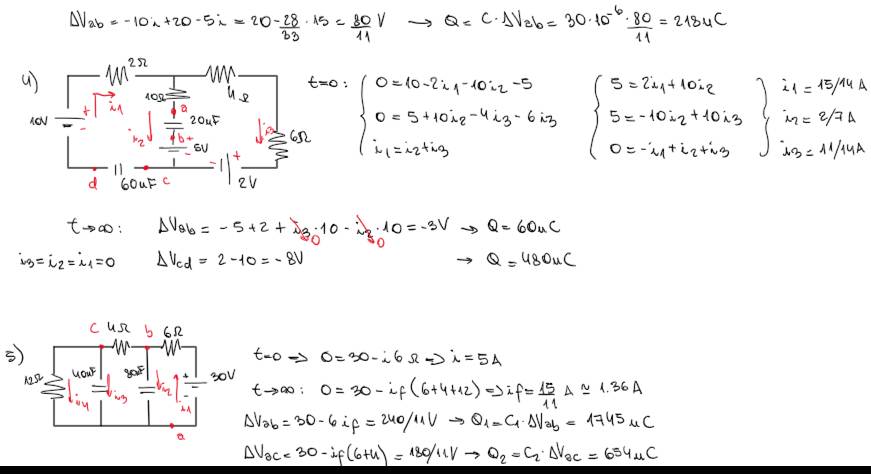 ΔVab = -10i + 20 - 5i = 20 - 28/33 · 15 = 80/11 V → Q = C · ΔVab = 30·10^-6 · 80/11 = 218 uC
4)
2Ω
i1
10V
+
-
10Ω
a
20uF
i2
b
+
5V
-
4Ω
i3
6Ω
d
60uF
c
-
+
2V
t=0: { 0=10-2i1-10i2-5 { 5=2i1+10i2 } i1=15/14 A
0=5+10i2-4i3-6i3 5=-10i2+10i3 i2=2/7A
i1=i2+i3 0=-i1+i2+i3 i3=11/14A
t→∞: ΔVab = -5+2+i3·10 - i2·10 = -3V → Q=60uC
0 0
i3=i2=i1=0 ΔVcd = 2-10=-8V → Q=480uC
5)
c
4Ω
b
6Ω
12Ω
i4
40uF
i3
80uF
i2
i1
+
-
30V
a
t=0 → 0=30-i6Ω → i=5A
t→∞: 0=30-if(6+4+12) → if=15/11 A ≃ 1.36A
ΔVab=30-6if=240/11V → Q1=C1·ΔVab=1745uC
ΔVac=30-if(6+4)=180/11V → Q2=C2·ΔVac=654uC